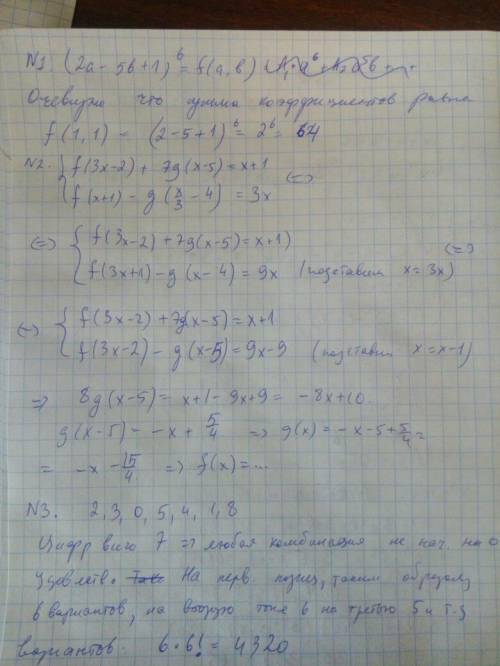 N1. (2a - 5b + 1)^6 = f(a, b)
Очевидно что сумма коэффициентов равна
f(1,1) = (2-5+1)^6 = 2^6 = 64
N2. { f(3x-2) + 7g(x-5) = x+1
f(x+1) - g(x/3 - 4) = 3x (=)
(=) { f(3x-2) + 7g(x-5) = x+1) (=)
f(3x+1) - g(x-4) = 9x (подставим x=3x)
{ f(3x-2) + 7g(x-5) = x+1
f(3x-2) - g(x-5) = 9x-9 (подставим x=x-1)
=> 8g(x-5) = x+1-9x+9 = -8x+10
g(x-5) = -x + 5/4 => g(x) = -x-5+5/4 =
= -x - 15/4 => f(x) = ...
N3. 2, 3, 0, 5, 4, 1, 8
Цифр всего 7 => любая комбинация не нач. на 0
удовлетв. На перв. позиц, таким образом,
6 вариантов, на вторую тоже 6 на третью 5 и т.д
вариантов: 6·6! = 4320